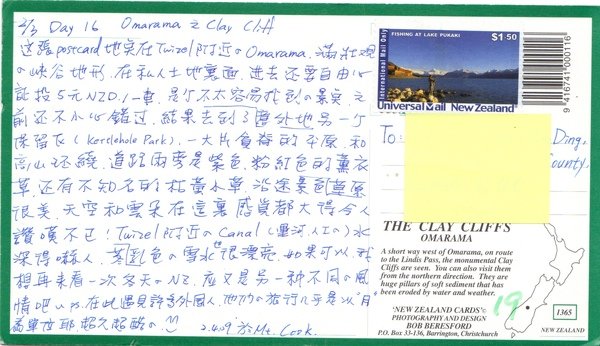 2/3 Day 16 Omarama 之 Clay Cliff
這張postcard地點在Twizel附近の Omarama, 滿壯觀
の峽谷地形, 在私人土地裏面, 進去還要自由心
証投5元NZD/一車, 是个不太容易找到の景點, 之
前还不小心錯過, 結果去到了國外地另一个
保留区 (Kettlehole Park), 一大片貧瘠的平原, 和
高山环繞, 道路兩旁是紫色, 粉紅色的薰衣
草, 还有不知名的枯黃小草, 沿途景色草原
很美, 天空和雲朵在這裏感覚都大得令人
讚嘆不已! Twizel 附近の Canal (運河, 人工の) 水
深得嚇人, 藍色の雪水很漂亮, 如果可以, 我
想再來看一次冬天の NZ, 应又是另一種不同の風
情吧! p.s. 在此遇見許多外國人, 他們の旅行几乎是以"月"
為單位耶 超久超酷の
2.4.09 於 Mt. Cook.
FISHING AT LAKE PUKAKI
$1·50
International Mail Only
Universal Mail New Zealand
9 416741 000116
To:
Ding,
County,
THE CLAY CLIFFS
OMARAMA
A short way west of Omarama, on route
to the Lindis Pass, the monumental Clay
Cliffs are seen. You can also visit them
from the northern direction. They are
huge pillars of soft sediment that has
been eroded by water and weather.
'NEW ZEALAND CARDS'©
PHOTOGRAPHY AND DESIGN
BOB BERESFORD
P.O. Box 33-136, Barrington, Christchurch
19
1365
NEW ZEALAND